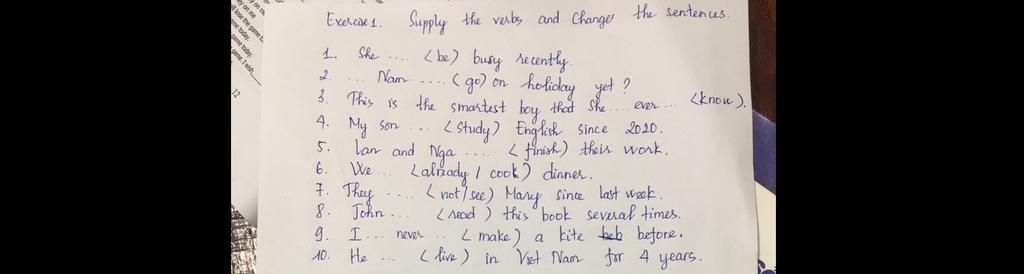 Exercise 1. Supply the verbs and Change the sentences.
1. She .... (be) busy recently.
2. ... Nam .... (go) on holiday yet ?
3. This is the smartest boy that she .... ever ... (know).
4. My son ... (study) English since 2020.
5. Lan and Nga .... (finish) their work.
6. We ... (already / cook) dinner.
7. They .... (not/see) Mary since last week.
8. John ... (read) this book several times.
9. I ... never .. (make) a kite before.
10. He ... (live) in Viet Nam for 4 years.
12